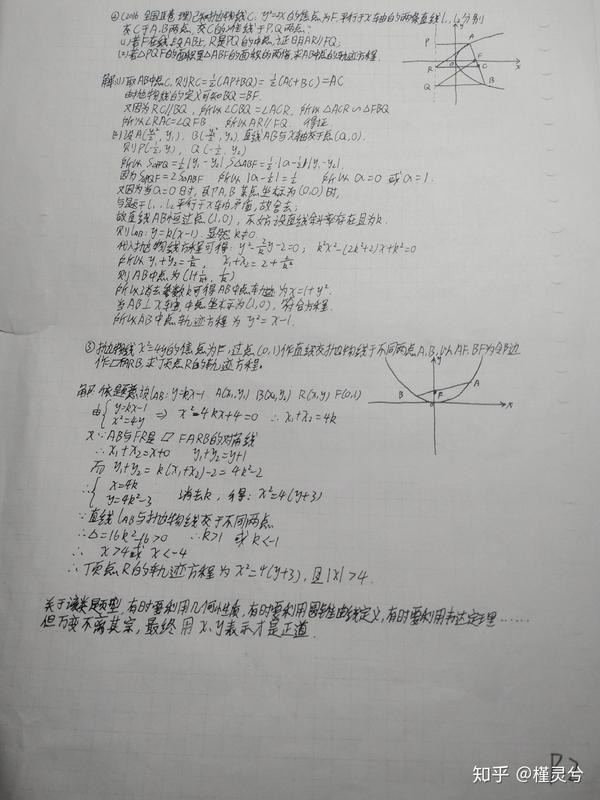 ②(2016 全国Ⅲ卷 理)已知抛物线C: y²=2x的焦点为F,平行于x轴的两条直线l₁,l₂分别
交C于A,B两点,交C的准线于P,Q两点。
(1)若F在线段AB上,R是PQ的中点,证明AR//FQ;
(2)若△PQF的面积是△ABF的面积的两倍,求AB中点的轨迹方程.
解:(1)取AB中点C,则RC=½(AP+BQ)=½(AC+BC)=AC
由抛物线的定义可知BQ=BF.
又因为RC//BQ,所以∠CBQ=∠ACR,所以△ACR∽△FBQ
所以∠RAC=∠QFB 所以AR//FQ. 得证.
(2)设A(y₁²/2, y₁), B(y₂²/2, y₂),直线AB与x轴交于点(a,0).
则P(-½,y₁), Q(-½,y₂)
所以S△PQF=½|y₁-y₂|, S△ABF=½·|a-½||y₁-y₂|,
因为S△PQF=2S△ABF 所以|a-½|=½ 所以a=0或a=1.
又因为当a=0时,即A,B某点坐标为(0,0)时,
与题干l₁,l₂平行于x轴矛盾,故舍去;
故直线AB恒过点(1,0),不妨设直线斜率存在且为k.
则lAB: y=k(x-1). 显然k≠0.
代入抛物线方程可得: y²-2/k y-2=0; k²x²-(2k²+2)x+k²=0
所以y₁+y₂=2/k, x₁+x₂=2+2/k²
则AB中点为(1+1/k², 1/k)
所以消去参数k可得AB中点轨迹为x=1+y².
当AB⊥x轴,中点坐标为(1,0),符合方程.
所以AB中点轨迹方程为y²=x-1.
P
A
R
O
F
C
Q
B
x
③抛物线x²=4y的焦点为F,过点(0,-1)作直线交抛物线于不同两点A,B,以AF,BF为邻边
作▱FARB,求顶点R的轨迹方程。
解:依题意设lAB: y=kx-1 A(x₁,y₁) B(x₂,y₂) R(x,y) F(0,1)
由{y=kx-1 x²=4y ⇒ x²-4kx+4=0 ∴x₁+x₂=4k
又∵AB与FR是▱FARB的对角线
∴x₁+x₂=x+0 y₁+y₂=y+1
而y₁+y₂=k(x₁+x₂)-2=4k²-2
∴{x=4k y=4k²-3 消去k,得: x²=4(y+3)
∵直线lAB与抛物线交于不同两点
∴△=16k²-16>0 ∴k>1或k<-1
∴x>4或x<-4
∴顶点R的轨迹方程为x²=4(y+3),且|x|>4.
y
A
B
F
O
x
关于该类题型,有时要利用几何性质,有时要利用圆锥曲线定义,有时要利用韦达定理……
但万变不离其宗,最终用x,y表示才是正道.
P2
知乎 @槿灵兮